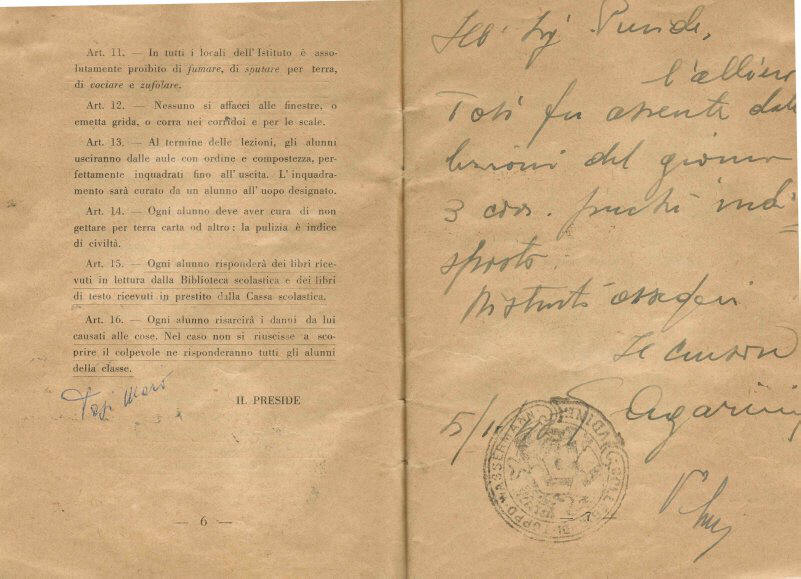 Art. 11. — In tutti i locali dell'Istituto è asso-
lutamente proibito di fumare, di sputare per terra,
di vociare e zufolare.
Art. 12. — Nessuno si affacci alle finestre, o
emetta grida, o corra nei corridoi e per le scale.
Art. 13. — Al termine delle lezioni, gli alunni
usciranno dalle aule con ordine e compostezza, per-
fettamente inquadrati fino all'uscita. L'inquadra-
mento sarà curato da un alunno all'uopo designato.
Art. 14. — Ogni alunno deve aver cura di non
gettare per terra carta od altro: la pulizia è indice
di civiltà.
Art. 15. — Ogni alunno risponderà dei libri rice-
vuti in lettura dalla Biblioteca scolastica e dei libri
di testo ricevuti in prestito dalla Cassa scolastica.
Art. 16. — Ogni alunno risarcirà i danni da lui
causati alle cose. Nel caso non si riuscisse a sco-
prire il colpevole ne risponderanno tutti gli alunni
della classe.
IL PRESIDE
— 6 —
Preside,
l'allievo
Tosi fu assente dalle
lezioni del giorno
3 corr. perchè indi-
sposto.
Distinti ossequi
Il censore
5/11
DI TOPPO WASSERMANN UDINE